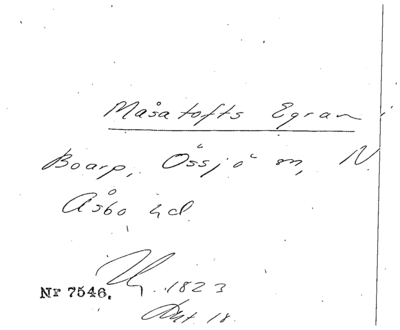 Måsatofts Egran i
Boarp, Össjö sn, N.
Åsbo hd.
1823
Nr 7546.
18.